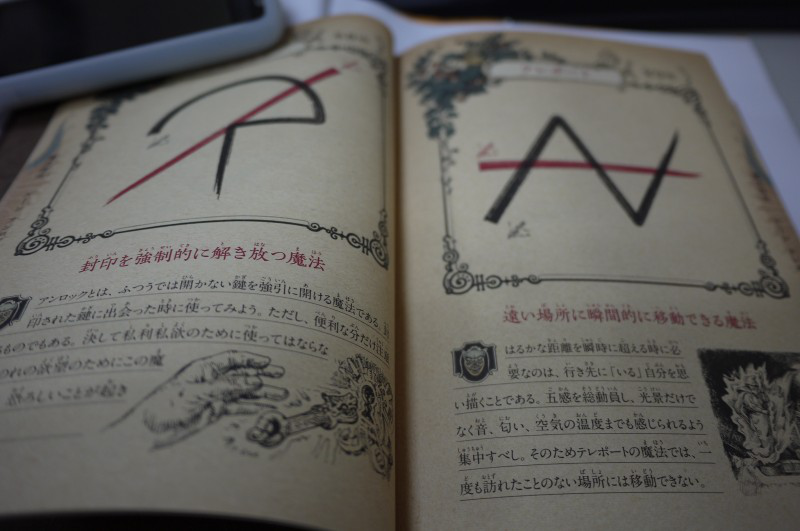 封印を強制的に解き放つ魔法
アンロックとは、ふつうでは開かない鍵を強引に開ける魔法である。
印された鍵に出会った時に使ってみよう。ただし、便利な分だけ
ものでもある。決して私利私欲のために使ってはならな
のれの欲望のためにこの魔
恐ろしいことが起き
遠い場所に瞬間的に移動できる魔法
はるかな距離を瞬時に超える時に必
要なのは、行き先に「いる」自分を思
い描くことである。五感を総動員し、光景だけで
なく音、匂い、空気の温度までも感じられるよう
集中すべし。そのためテレポートの魔法では、一
度も訪れたことのない場所には移動できない。